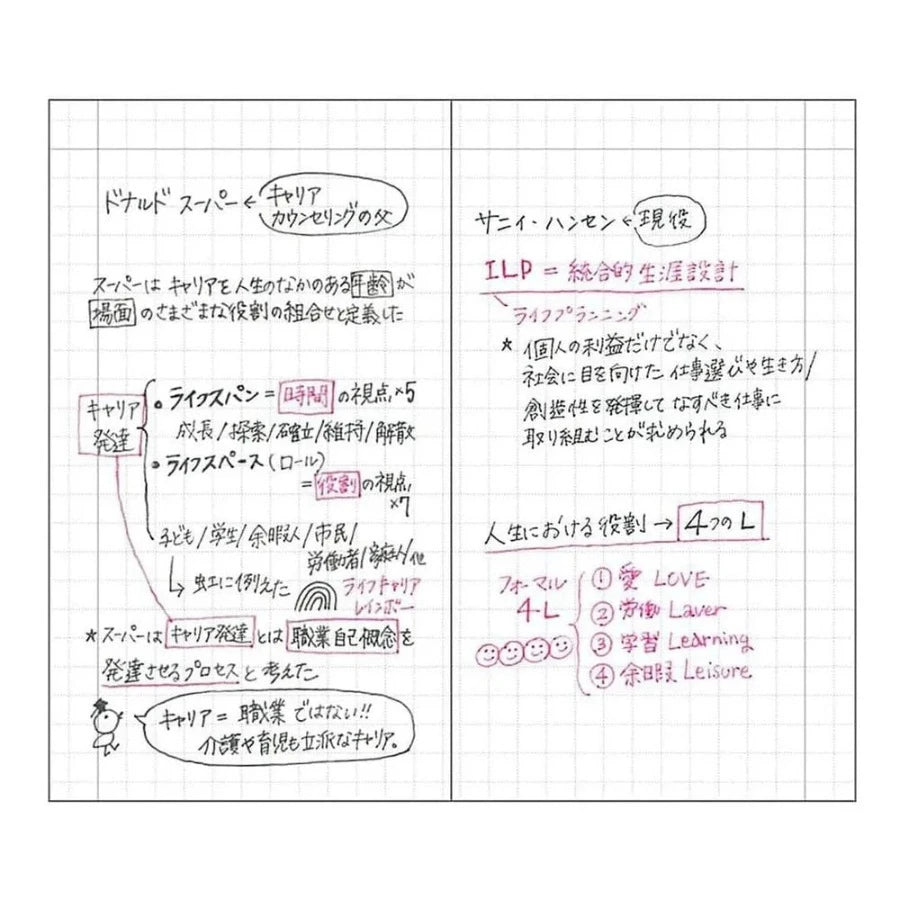 ドナルド スーパー ← キャリア
カウンセリングの父
スーパーは キャリアを人生のなかのある年齢が
場面のさまざまな役割の組合せと定義した
キャリア
発達
・ライフスパン = 時間の視点×5
成長/探索/確立/維持/解散
・ライフスペース(ロール)
= 役割の視点
×7
子ども/学生/余暇人/市民/
労働者/家庭人/他
↳ 虹に例えた
ライフキャリア
レインボー
★ スーパーは キャリア発達とは 職業自己概念を
発達させるプロセスと考えた
キャリア = 職業ではない!!
介護や育児も立派なキャリア。
サニィ・ハンセン ← 現役
ILP = 統合的生涯設計
ライフプランニング
★ 個人の利益だけでなく、
社会に目を向けた 仕事選びや生き方/
創造性を発揮して なすべき仕事に
取り組むことが求められる
人生における役割 → 4つのL
フォーマル
4L
① 愛 LOVE
② 労働 Laver
③ 学習 Learning
④ 余暇 Leisure